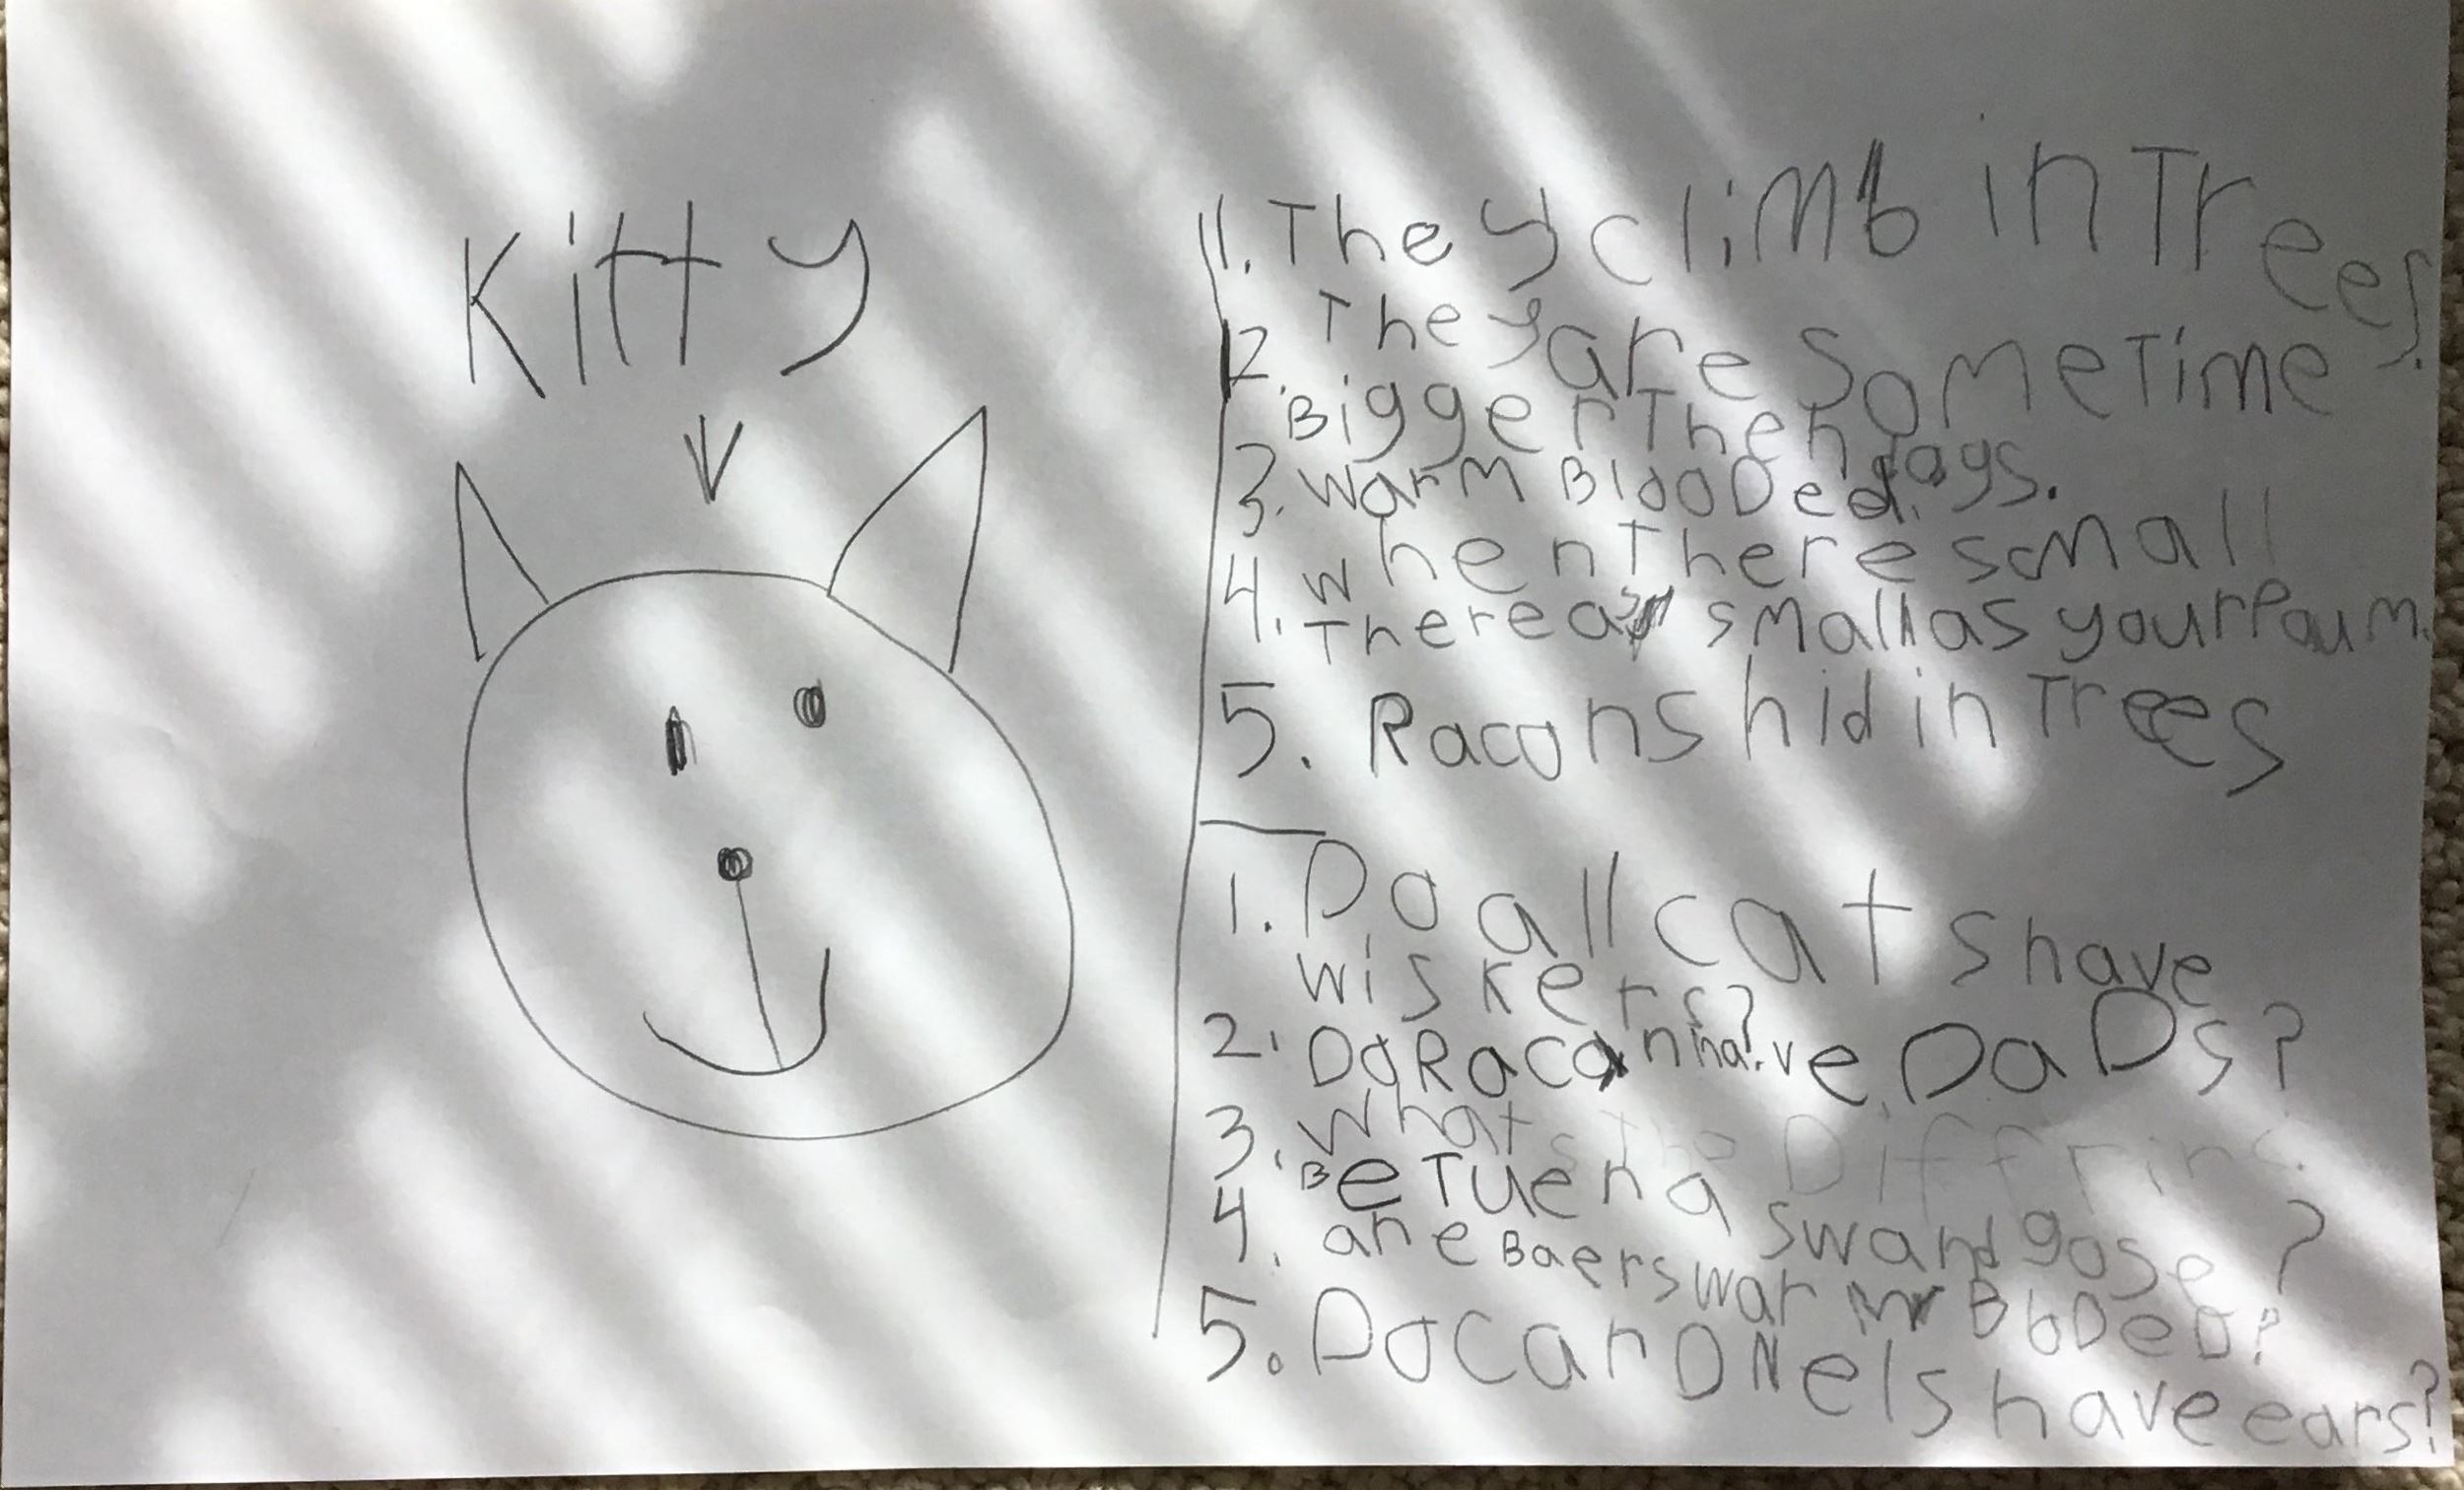 Kitty
1. They climb in Trees.
2. They are SomeTime
Bigger Then dogs.
3. Warm BlooDed.
4. when There small
There as small as your Paum.
5. Racons hid in Trees
1. Do all cats have
wiskers?
2. Do Racon have DaDs?
3. Whats The Diffrins
BeTuen a swan gose?
4. are Baers warm BloDeD?
5. Do carDNels have ears?